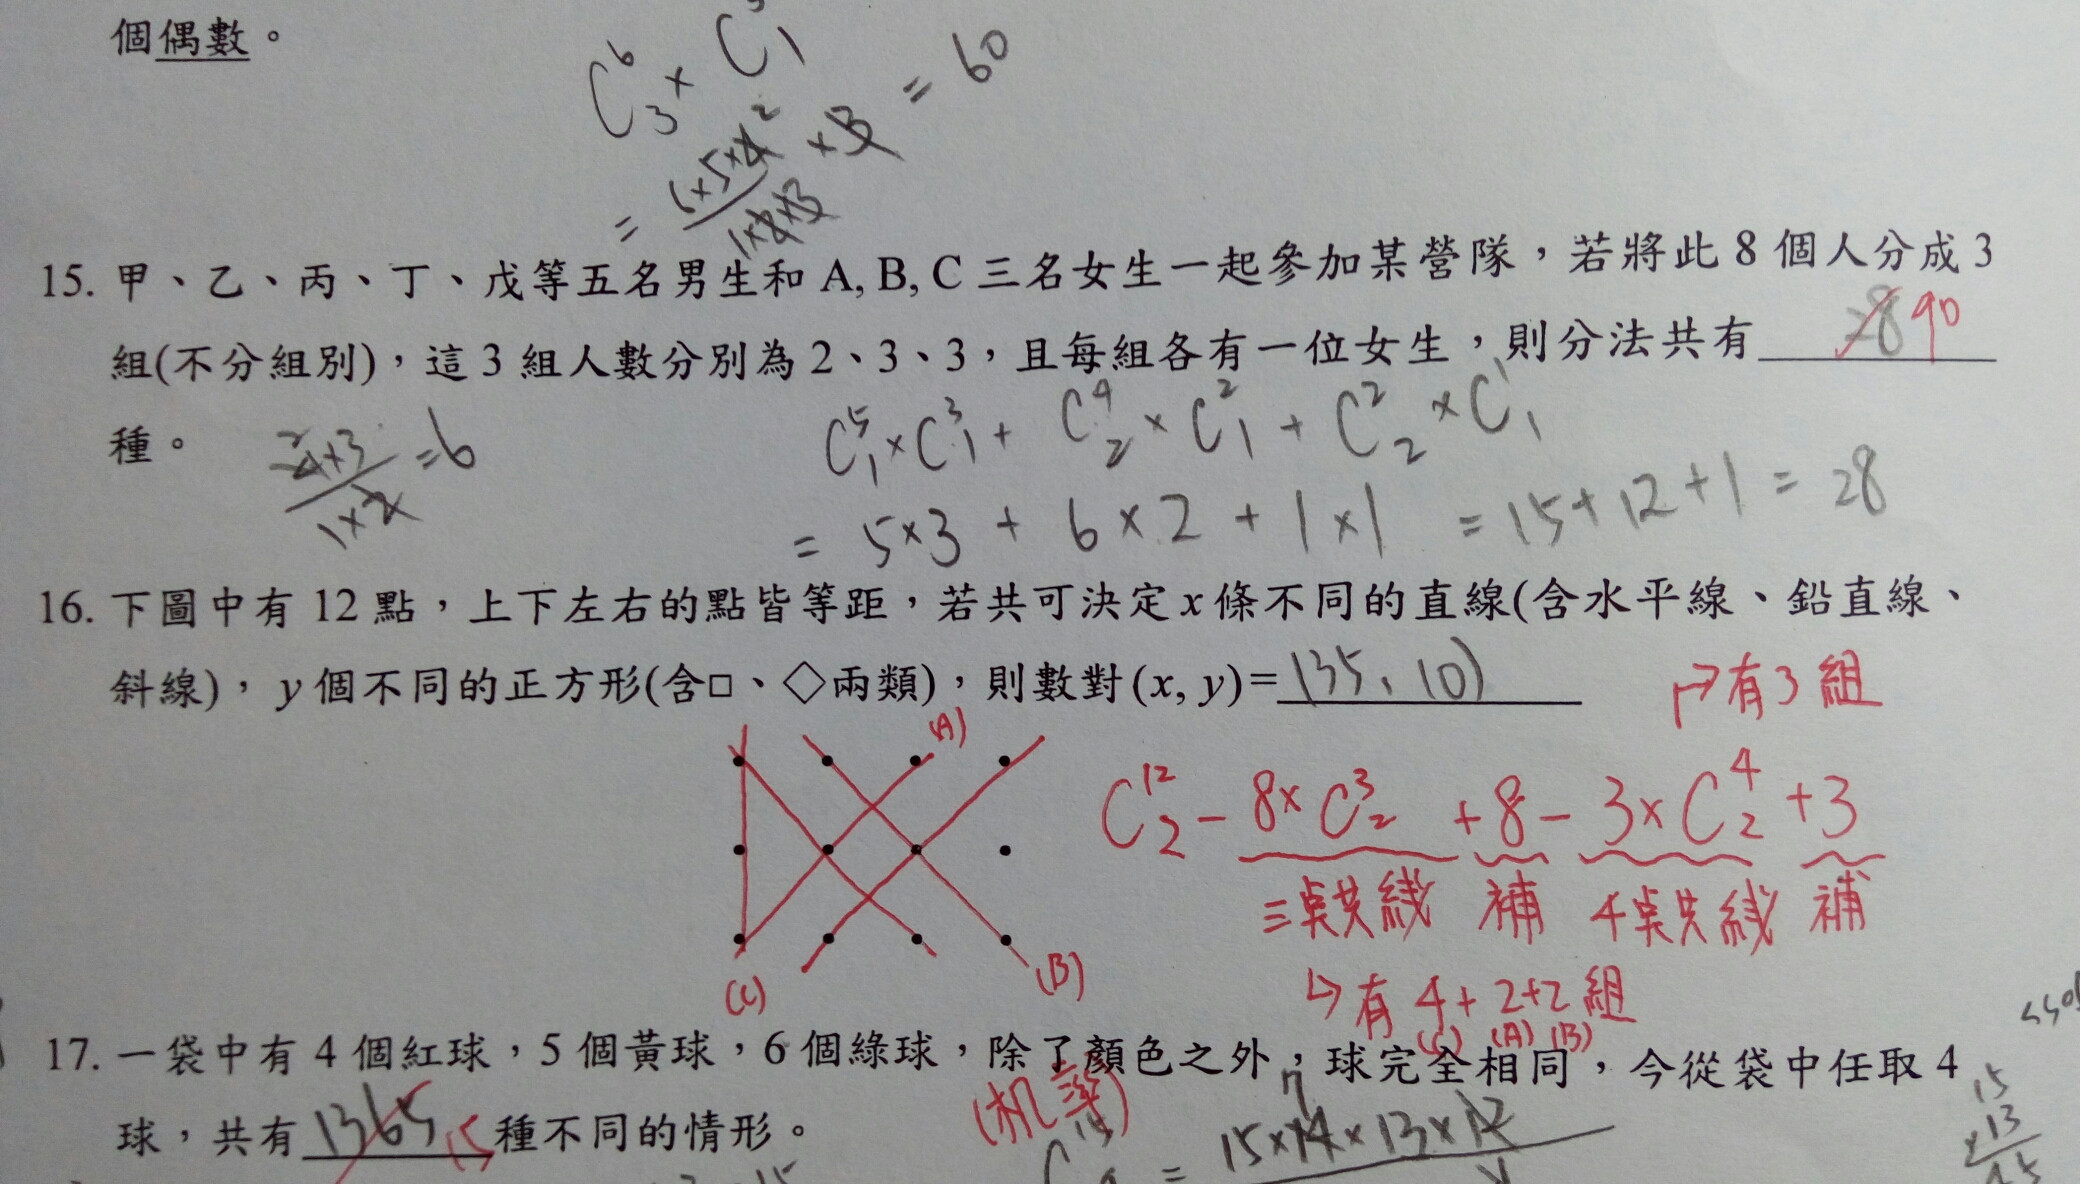 個偶數。
C⁶₃ × C³₁
= 6×5×4²/1×2×3 × 3 = 60
15. 甲、乙、丙、丁、戊等五名男生和 A, B, C 三名女生一起參加某營隊，若將此 8 個人分成 3
組(不分組別)，這 3 組人數分別為 2、3、3，且每組各有一位女生，則分法共有 28 90
種。
²4×3/1×2 = 6
C⁵₁×C³₁ + C⁴₂×C²₁ + C²₂×C¹₁
= 5×3 + 6×2 + 1×1 = 15+12+1 = 28
16. 下圖中有 12 點，上下左右的點皆等距，若共可決定 x 條不同的直線(含水平線、鉛直線、
斜線)，y 個不同的正方形(含□、◇兩類)，則數對(x, y)= (35、10)
↱有3組
(A)
C¹²₂ - 8×C³₂ + 8 - 3×C⁴₂ + 3
三點共線 補 4點共線 補
(C) (B)
↳有 4+2+2 組
(C) (A) (B)
17. 一袋中有 4 個紅球，5 個黃球，6 個綠球，除了顏色之外，球完全相同，今從袋中任取 4
球，共有 1365 15 種不同的情形。
(机率)
= 15×14×13×12
7
15
×13
45